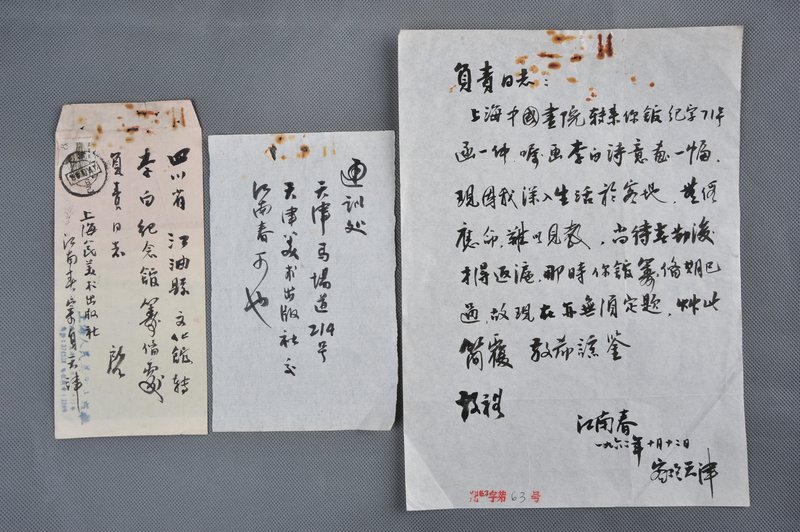 四川省江油縣文化館轉
李白紀念館籌備處
負責同志 啟
上海人民美术出版社
江南春寄自天津
通訊处
天津马場道214号
天津美术出版社交
江南春可也
負責同志：
上海中國畫院轉来你館纪字71号
函一件，嘱画李白诗意画一幅，
現因我深入生活於客地，
應命，難以見教，尚待春節後
才得返滬，那時你館籌備期已
過，故現在再無須定题，艸此
簡覆 敬希諒鉴
致礼
江南春
一九六二年十月十二日
客次天津
63字第63号